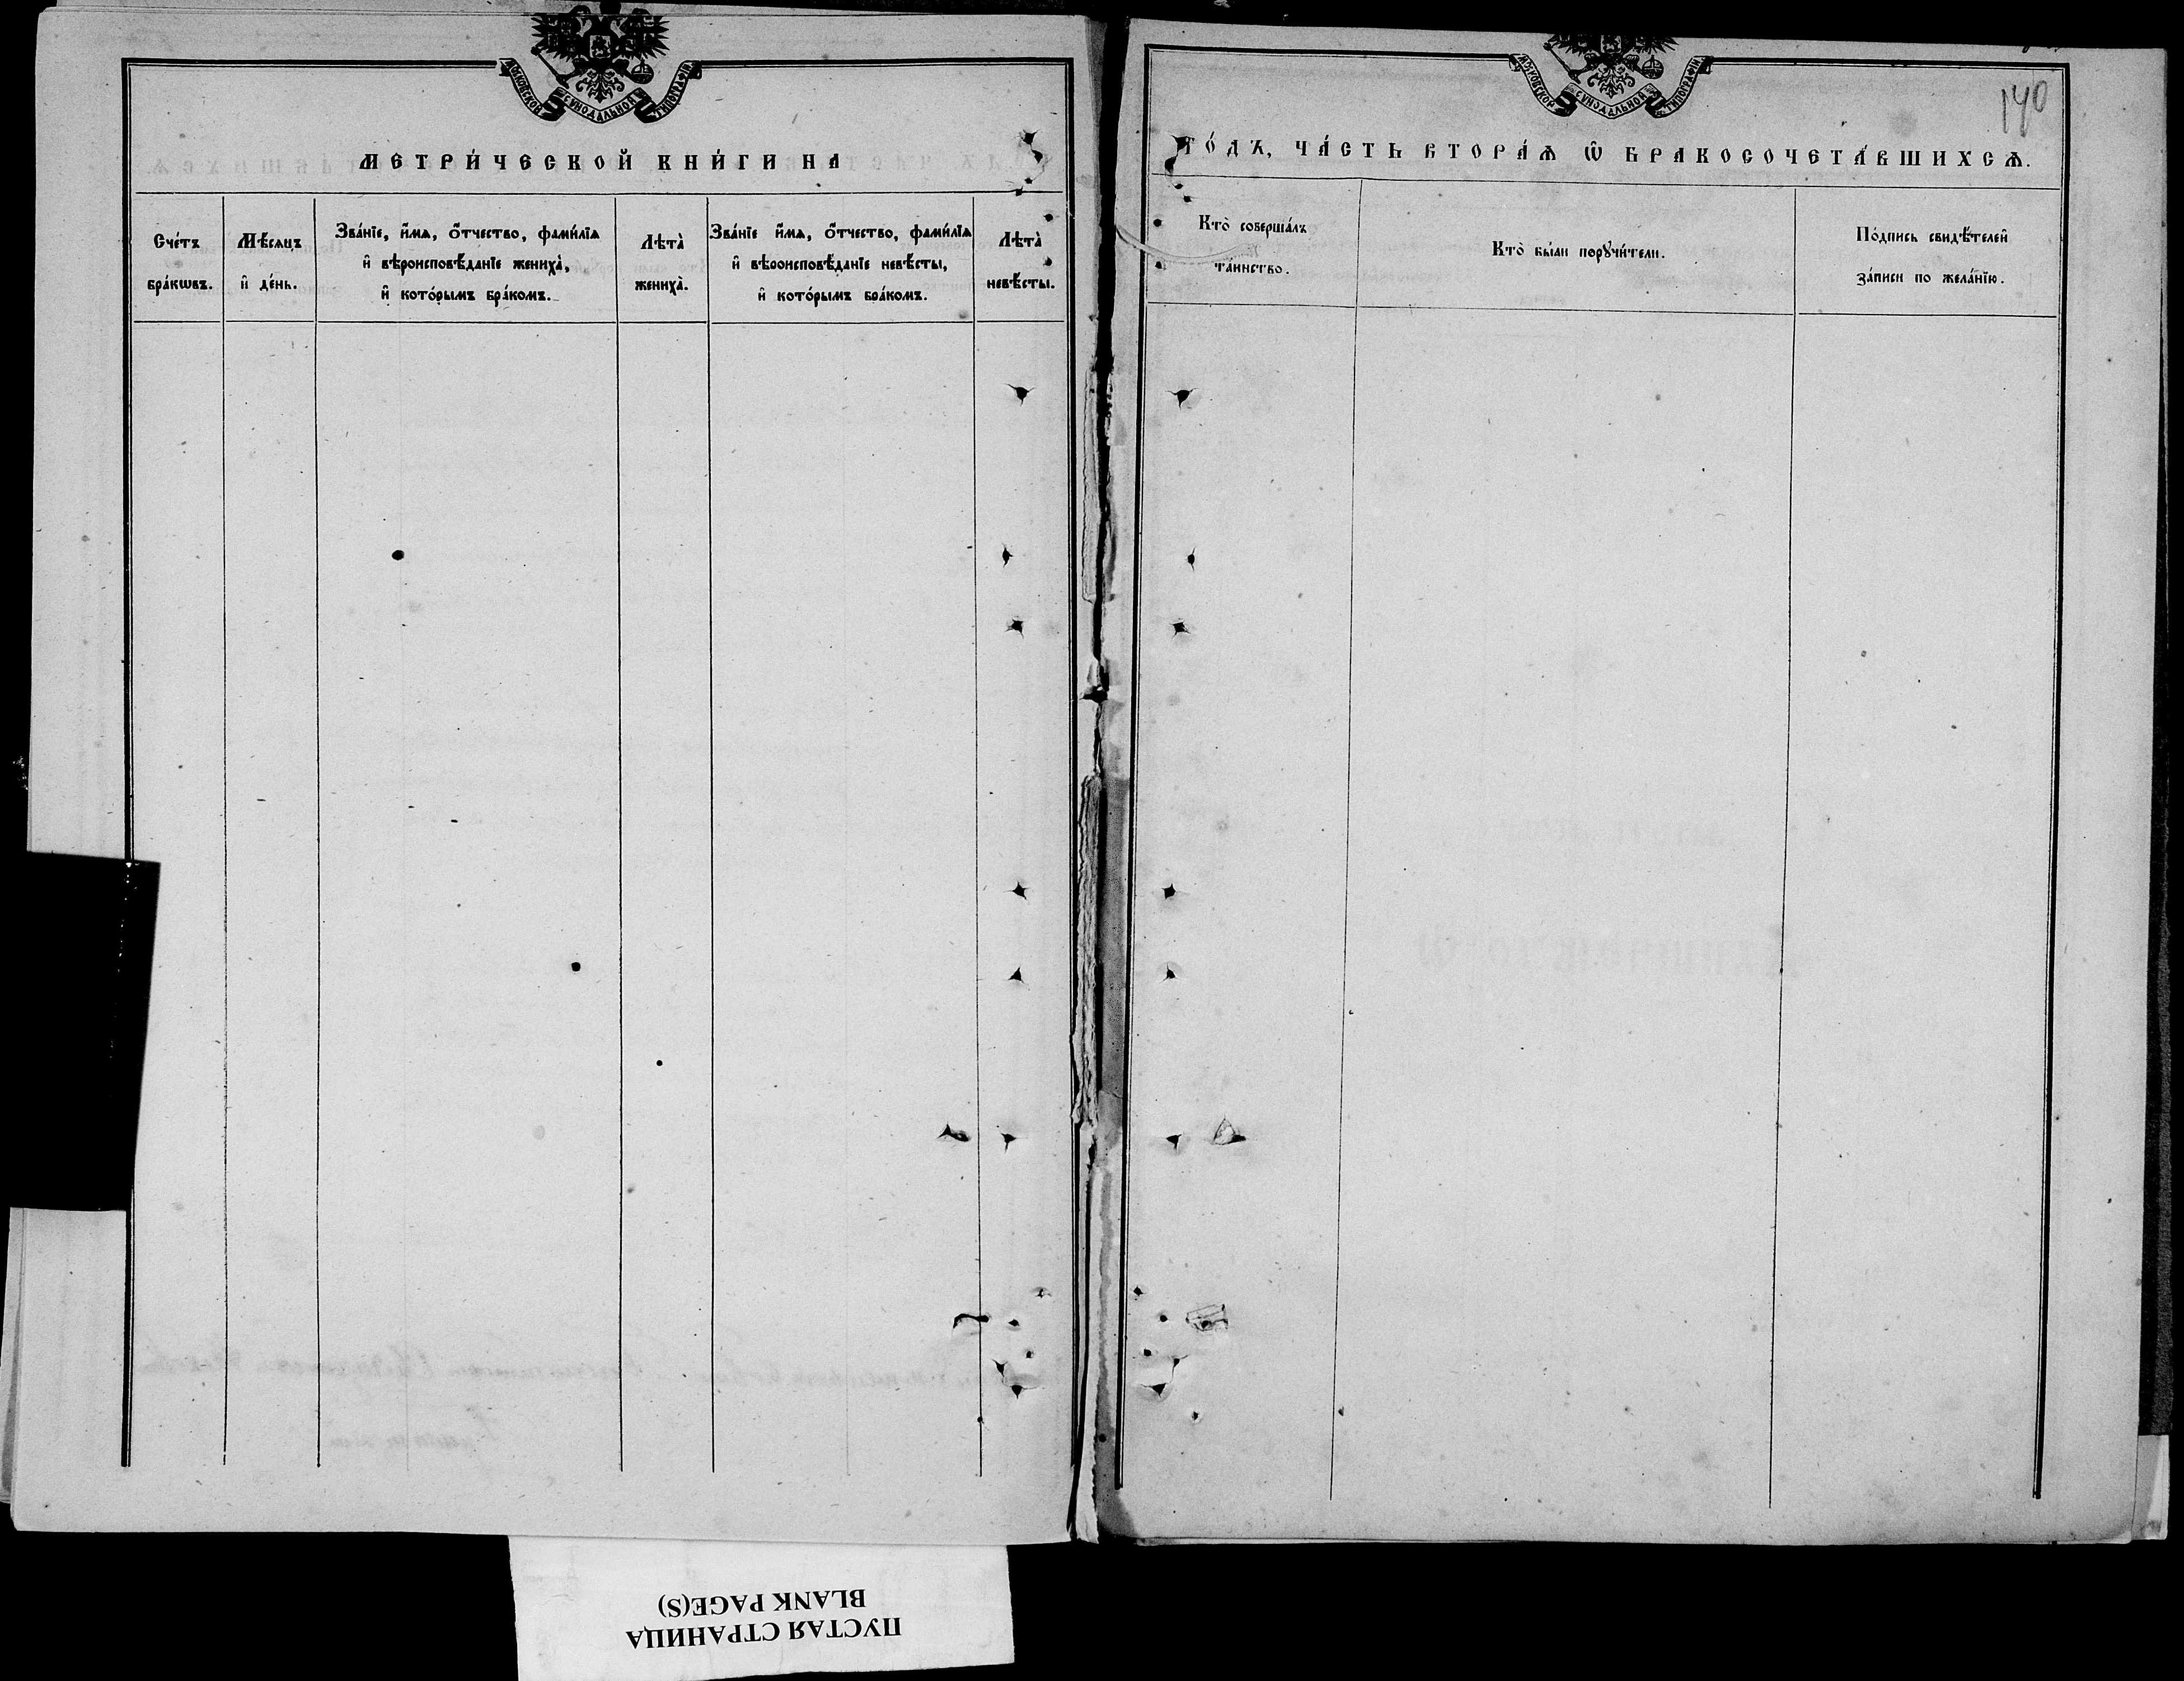 МОСКОВСКОЙ СѴНОДАЛЬНОЙ ТИПОГРАФІИ
МЕТРИ́ЧЕСКОЙ КНИ́ГИ НА
Сче́тъ
бра́кѡвъ.
Мѣ́сяцъ
и҆ де́нь.
Зва́нїе, и҆́мя, ѻ҆́тчество, фами́лїя
и҆ вѣроисповѣ́данїе жениха̀,
и҆ кото́рымъ бра́комъ.
Лѣта̀
жениха̀.
Зва́нїе и҆́мя, ѻ҆́тчество, фами́лїя
и҆ вѣроисповѣ́данїе невѣ́сты,
и҆ кото́рымъ бра́комъ.
Лѣта̀
невѣ́сты.
МОСКОВСКОЙ СѴНОДАЛЬНОЙ ТИПОГРАФІИ
140
ГО́ДЪ, ЧА́СТЬ ВТОРА́Ѧ Ѽ БРАКОСОЧЕТА́ВШИХСѦ.
Кто̀ соверша́лъ
та́инство.
Кто̀ бы́ли порꙋчи́тели.
По́дпись свидѣ́телей
за́писи по жела́нїю.
ПУСТАЯ СТРАНИЦА
BLANK PAGE(S)